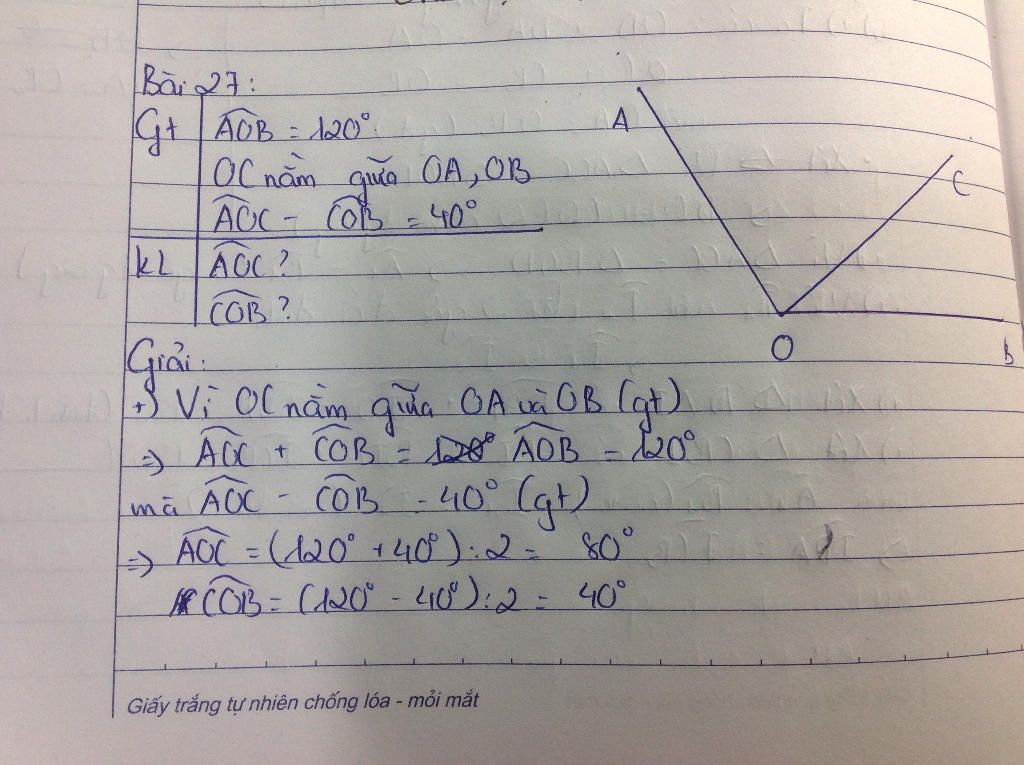 Bài 27:
Gt AOB = 120°
OC nằm giữa OA, OB
AOC - COB = 40°
KL AOC ?
COB ?
A
C
O
B
Giải:
+) Vì OC nằm giữa OA và OB (gt)
=> AOC + COB = 120° AOB = 120°
mà AOC - COB = 40° (gt)
=> AOC = (120° + 40°) : 2 = 80°
COB = (120° - 40°) : 2 = 40°
Giấy trắng tự nhiên chống lóa - mỏi mắt